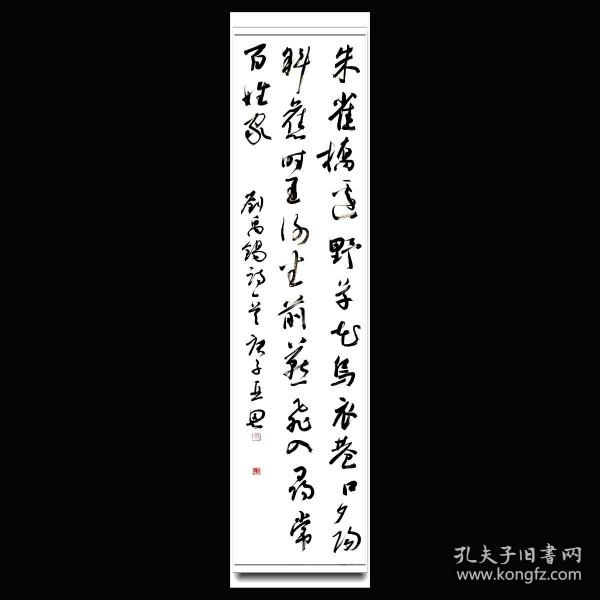 朱雀橋邊野草花烏衣巷口夕陽
斜舊时王謝堂前燕飛入尋常
百姓家
劉禹錫詩 庚子
孔夫子旧書网
www.kongfz.com